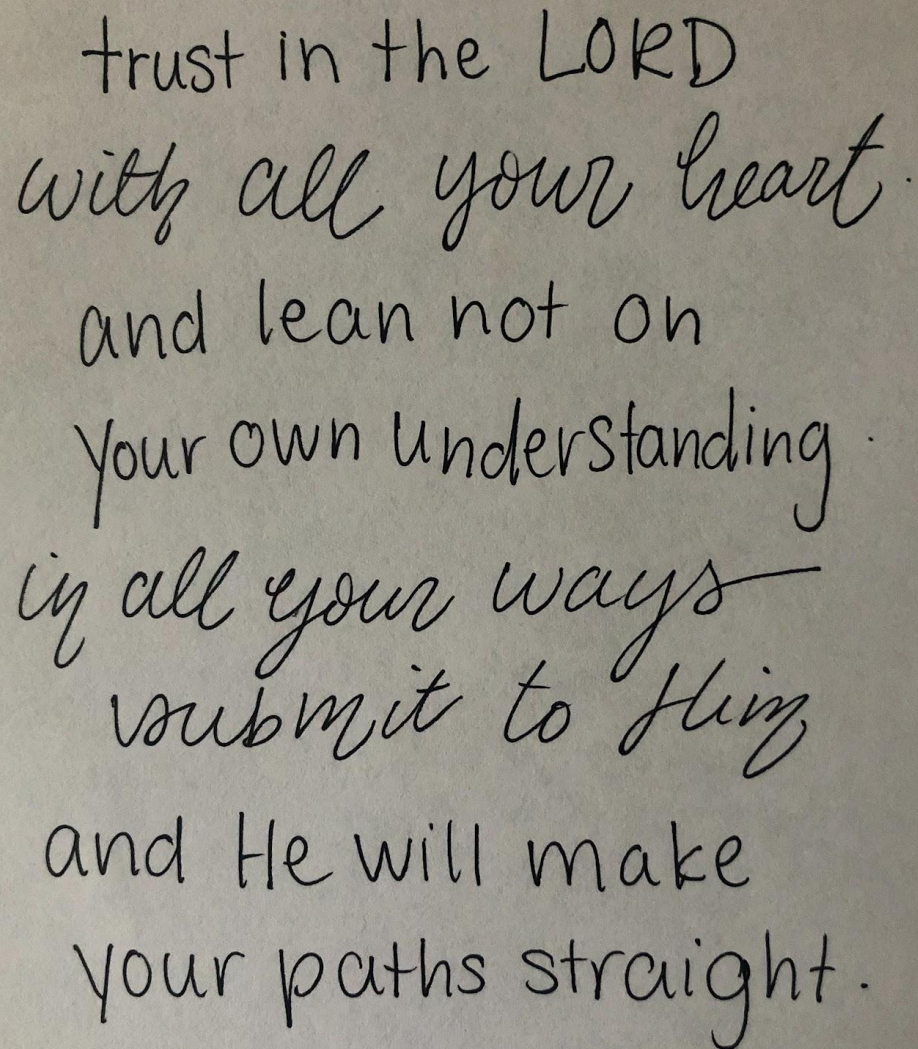 trust in the LORD
with all your heart.
and lean not on
your own understanding.
in all your ways
submit to Him
and He will make
your paths straight.